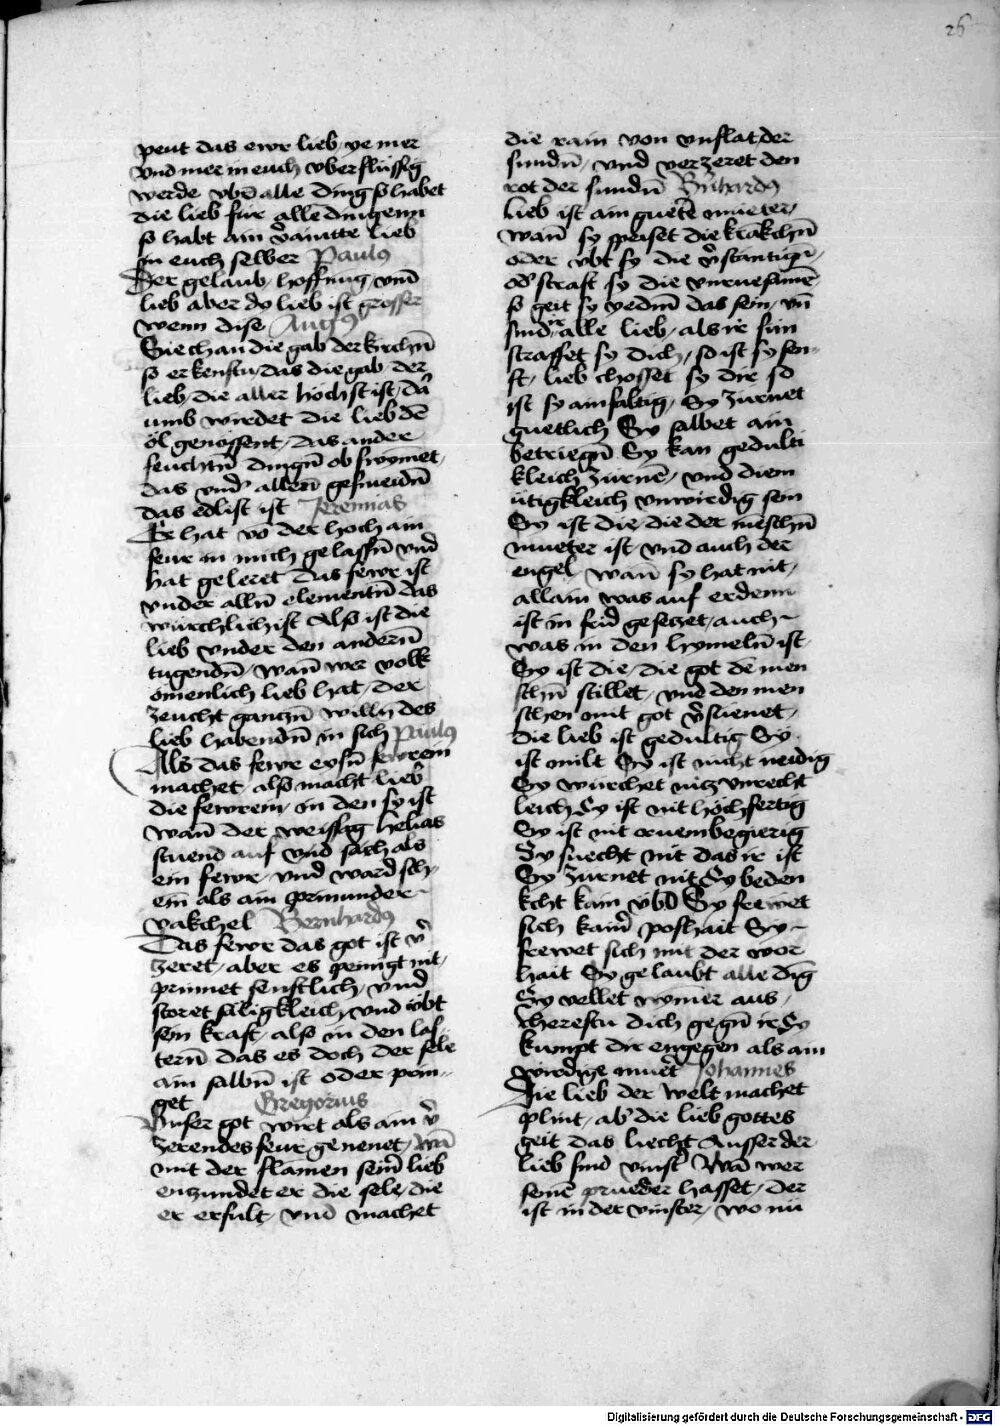 26
peut das ewr lieb ye mer
vnd mer in euch vberflüssig
werde vbͤ alle ding so habet
die lieb für alle dingenn
so habt ain v̄ainte lieb
in euch selber Paulus
Der gelaub, hoffnug vnd
lieb aber dy lieb ist grosser
wenn dise Augus
Siech an die gab der kirchn̄
so erkenstu das die gab der
lieb die aller höchst ist, da
umb wirdet die lieb dē
öl genossent, das ander
feuchtn̄ dingn̄ ob swymet,
das vnd' allen̄ gesmeidn̄
das edlist ist Jeremias
Er hat vō der hoch ain
feur in mich gelassn̄ vnd
hat geleret das fewr ist
vnder alln̄ elementn̄ das
würchlichist Also ist die
lieb vnder den andern̄
tugendn̄, wan̄ wer volk
omenlich lieb hat, der
zeucht ganczn̄ willn̄ des
lieb habendn̄ in sich Paulus
Als das fewr eysn̄ fewrein
machet, also macht lieb
die fewrein, in den sy ist
wan̄ der weissag helias
stuend auf vnd sach als
ein fewr, vnd ward sch
ein als ain prinunder
vakchel Bernhardus
Das fewr das got ist v̄
zeret, aber es peinigt nit,
prinnet senftlich, vnd
storet säligkleich vnd vbt
sein kraft, also in den las
tern̄ das es doch der sele
ain salbn̄ ist oder prin
get Gregorius
Vnser got wirt als ain v̄
zerendes feur genenet, wā
mit der flamen sein̄ lieb
enzundet er die sele, die
er erfult, vnd machet
die rain von vnflat der
sundn̄, vnd verzeret den
rot der sundn̄ Bn̄hardus
Lieb ist ain guetē mueter,
wan̄ sy speiset die krākchn̄
oder vbt sy die v̄stantign̄,
od' straft sy die vnruesamē,
so geit sy yedm̄ das sein, vn̄
sind alle lieb, als ir sun
straffet sy dich, so ist sy sen
ft, lieb chosset sy dir so
ist sy ainfaltig, Sy zürnet
guetlich Sy salbet ain
betriegn̄ Sy kan gedulti
kleich zürnē, vnd diem
ütigkleich vnwirdig sein
Sy ist die die der mēschn̄
mueter ist vnd auch der
engel, wan̄ sy hat nit,
allain was auf erdenn
ist in frid gesetzet, auch
was in den hymeln̄ ist
Sy ist die, die got dē men
schn̄ stillet, vnd den men
schen mit got v̄suenet,
die lieb ist gedultig Sy
ist milt Sy ist nicht neidig
Sy würchet nicz vnrecht
leich Sy ist nit hochfertig
Sy ist nit eruembegierig
Sy suecht nit das ir ist
Sy zürnet nit Sy beden
kcht kain vbl Sy frewet
sich kain̄ poshait Sy
frewet sich mit der wor
hait Sy gelaubt alle dig
Sy vellet nymer aus,
cherestu dich gegn̄ ir Sy
kumpt dir engegen als ain
wirdige muet̄ Johannes
Die lieb der welt machet
plint, ab' die lieb gottes
geit das liecht Ausser der
lieb sind vinst̄ Wā wer
seinē prueder hasset, der
ist in der vinster, wo nu
Digitalisierung gefördert durch die Deutsche Forschungsgemeinschaft - DFG